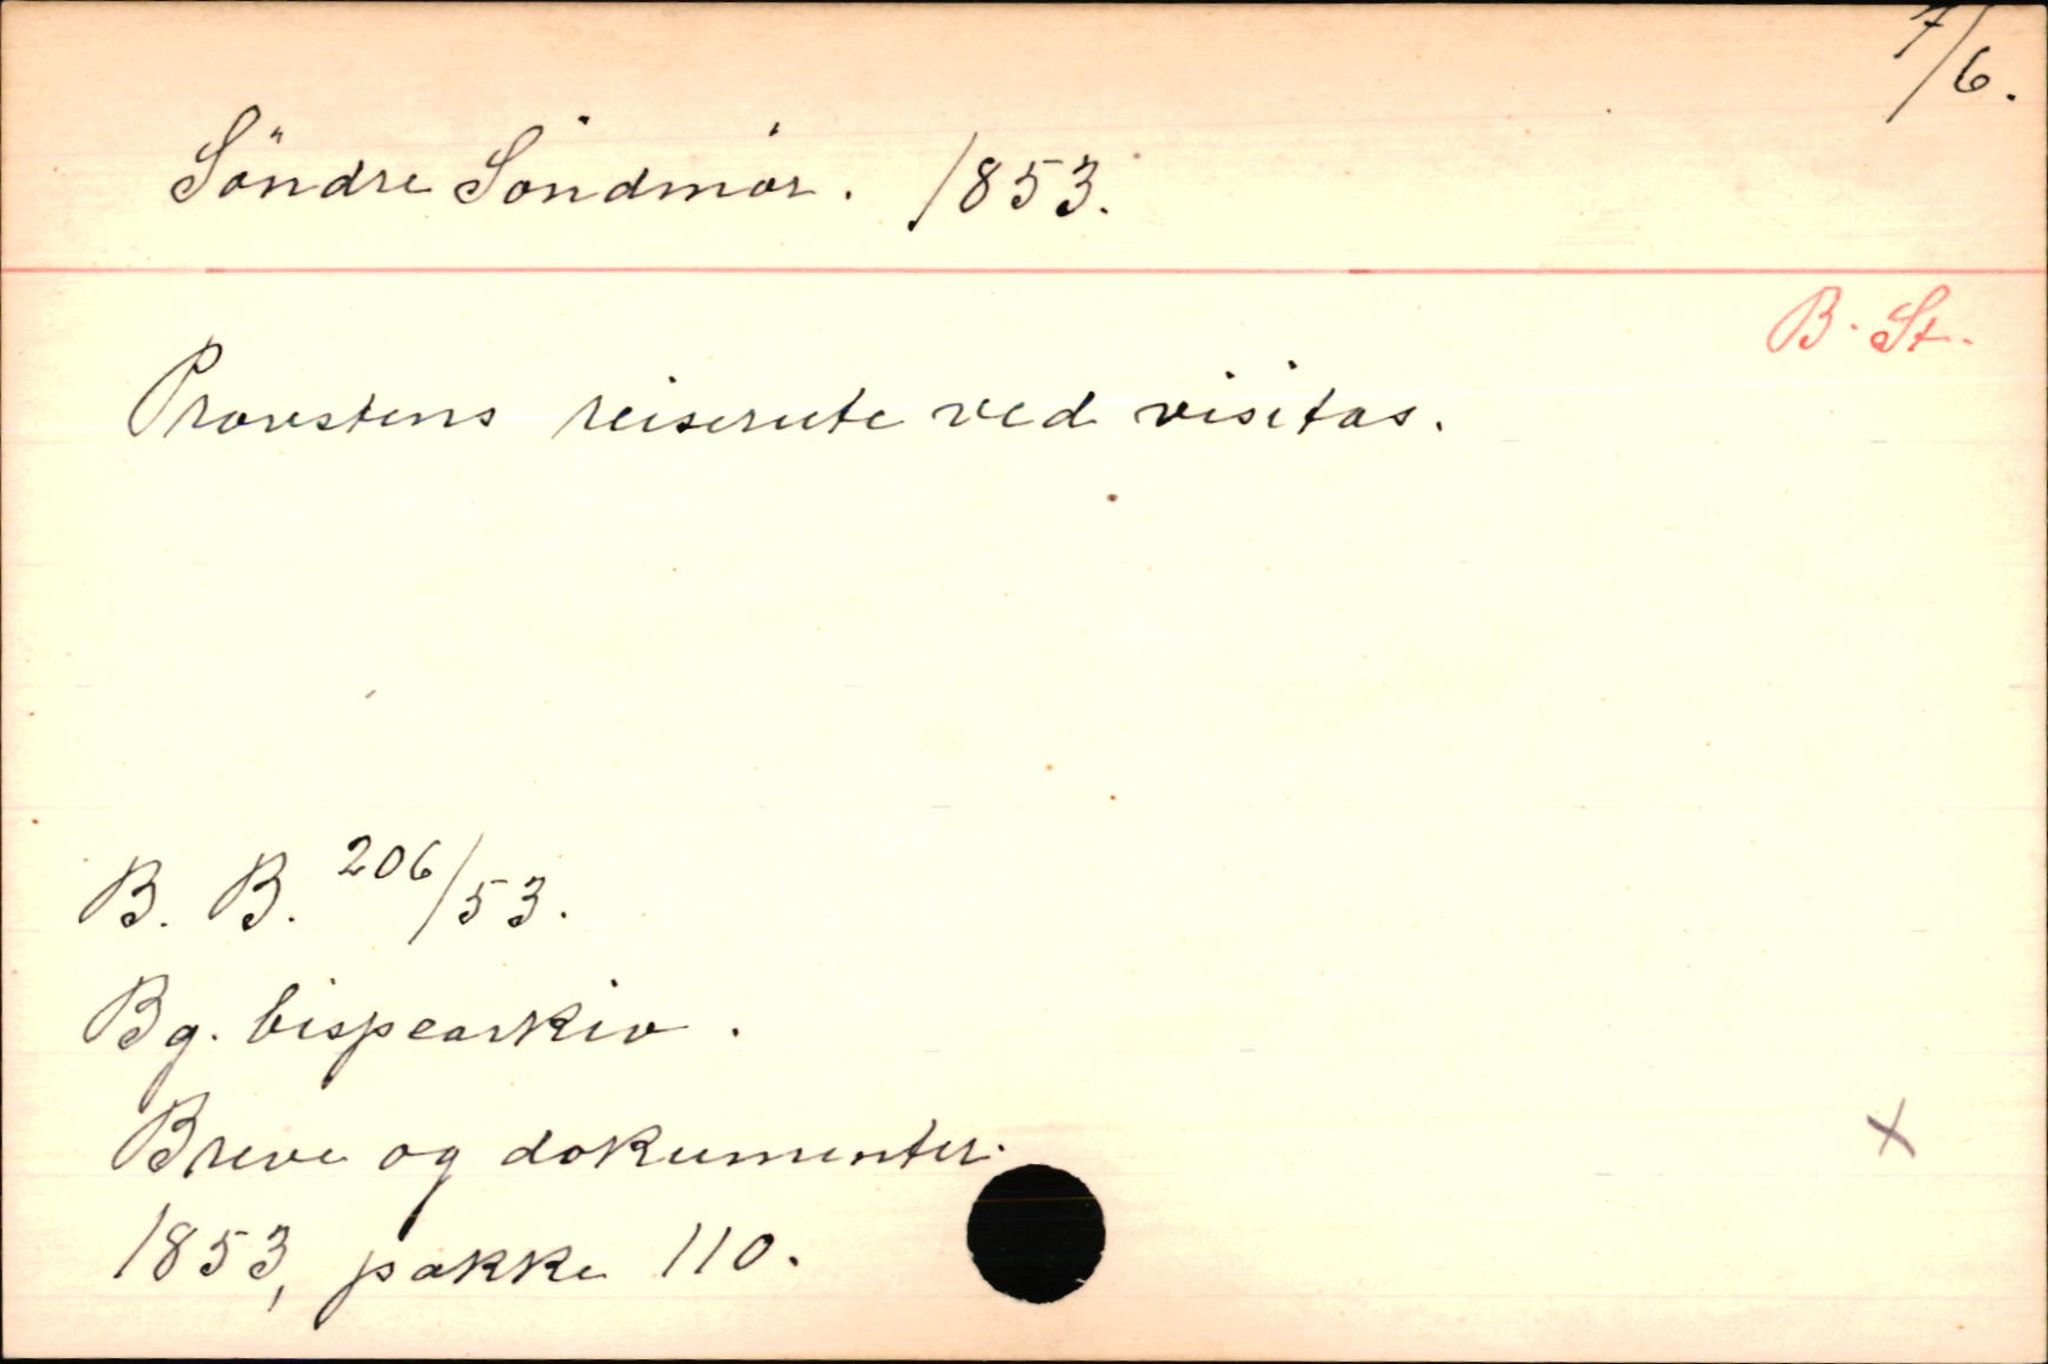 7/6.
Söndre Söndmör. 1853.
B. St.
Provstens reiserute ved visitas.
B. B. 206/53.
Bg. bispearkiv.
Breve og dokumenter.
1853, pakke 110.
x